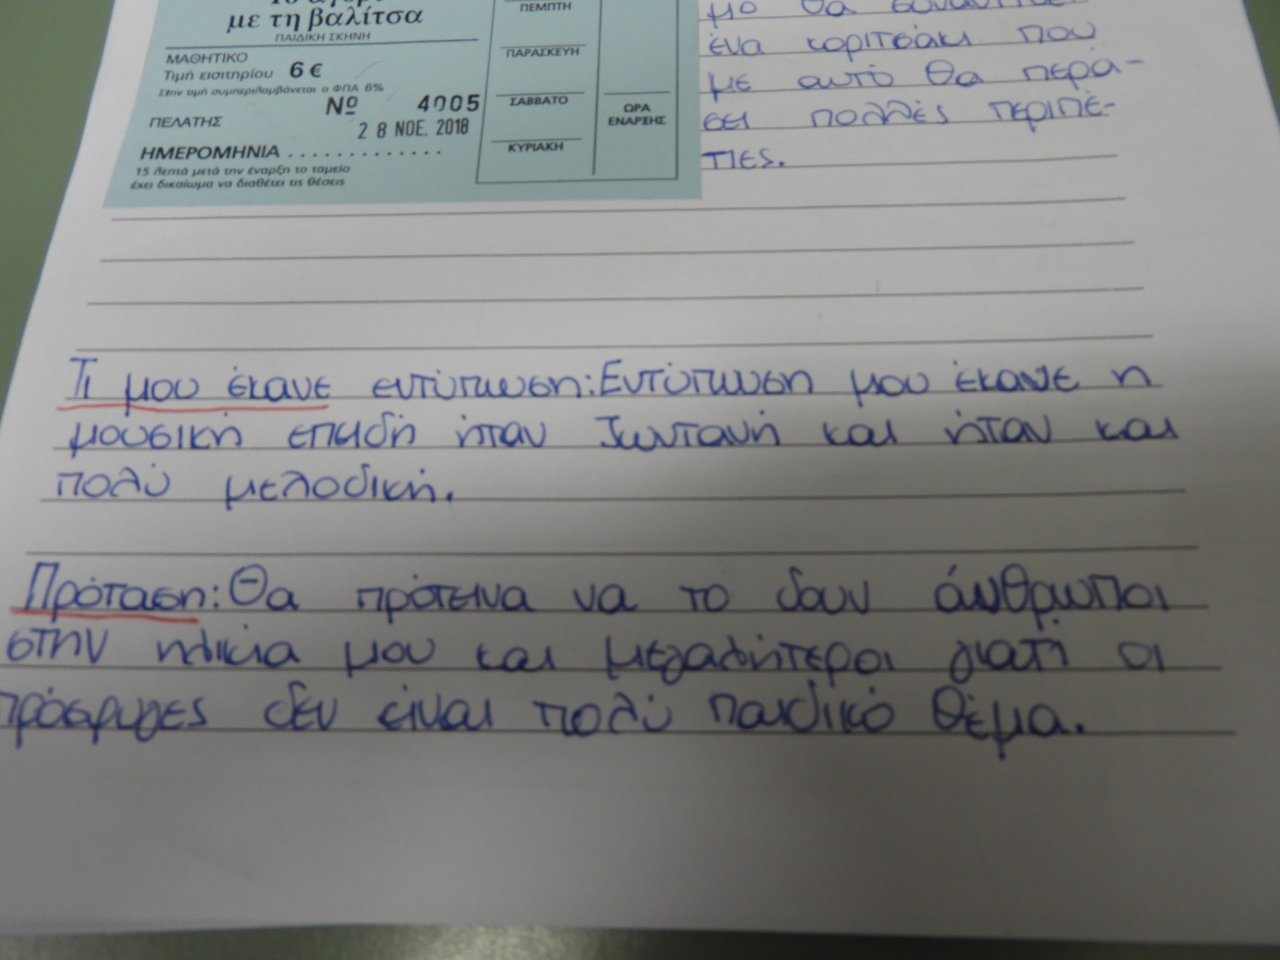 με τη βαλίτσα
ΠΑΙΔΙΚΗ ΣΚΗΝΗ
ΜΑΘΗΤΙΚΟ
Τιμή εισιτηρίου 6 €
Στην τιμή συμπεριλαμβάνεται ο ΦΠΑ 6%
Νο 4005
ΠΕΛΑΤΗΣ
2 8 ΝΟΕ. 2018
ΗΜΕΡΟΜΗΝΙΑ .............
15 λεπτά μετά την έναρξη το ταμείο
έχει δικαίωμα να διαθέτει τις θέσεις
ΠΕΜΠΤΗ
ΠΑΡΑΣΚΕΥΗ
ΣΑΒΒΑΤΟ
ΚΥΡΙΑΚΗ
ΩΡΑ
ΕΝΑΡΞΗΣ
μο θα
ένα κοριτσάκι που
με αυτό θα περά-
σει πολλές περιπέ-
τιες.
Τι μου έκανε εντύπωση: Εντύπωση μου έκανε η
μουσική επειδή ήταν ζωντανή και ήταν και
πολύ μελοδική.
Πρόταση: Θα πρότεινα να το δουν άνθρωποι
στην ηλικία μου και μεγαλήτεροι γιατί οι
πρόσφυγες δεν είναι πολύ παιδικό θέμα.